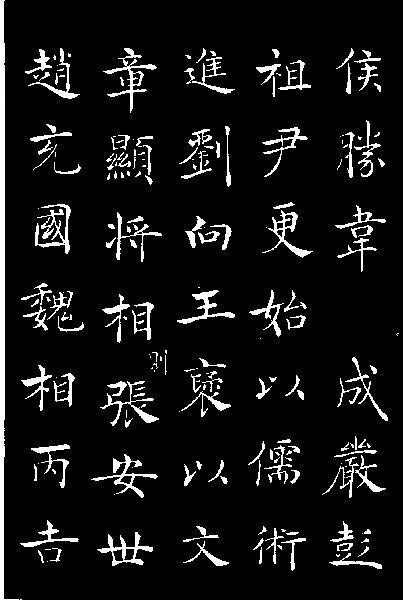 侯勝韋 成嚴彭
祖尹更始以儒術
進劉向王褒以文
章顯將相張安世
趙充國魏相丙吉